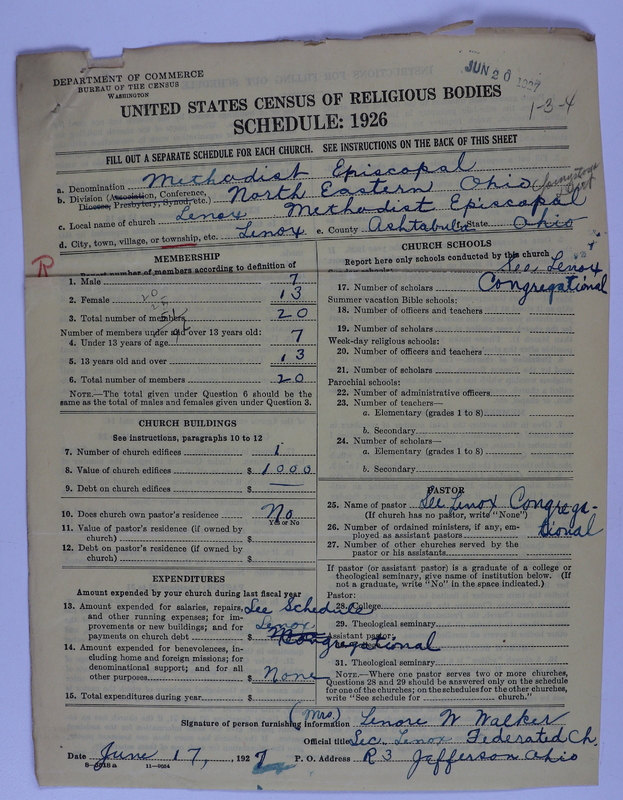 JUN 20 1927
1-3-4
DEPARTMENT OF COMMERCE
BUREAU OF THE CENSUS
WASHINGTON
UNITED STATES CENSUS OF RELIGIOUS BODIES
SCHEDULE: 1926
FILL OUT A SEPARATE SCHEDULE FOR EACH CHURCH. SEE INSTRUCTIONS ON THE BACK OF THIS SHEET
a. Denomination Methodist Episcopal
b. Division (Association, Conference, Diocese, Presbytery, Synod, etc.) North Eastern Ohio
c. Local name of church Lenox Methodist Episcopal
d. City, town, village, or township, etc. Lenox e. County Ashtabula f. State Ohio
R
MEMBERSHIP
Report number of members according to definition of
1. Male 7
2. Female 13
3. Total number of members 20
Number of members under and over 13 years old:
4. Under 13 years of age 7
5. 13 years old and over 13
6. Total number of members 20
NOTE.—The total given under Question 6 should be
same as the total of males and females given under Question 3.
CHURCH BUILDINGS
See instructions, paragraphs 10 to 12
7. Number of church edifices 1
8. Value of church edifices $ 1000
9. Debt on church edifices $ —
10. Does church own pastor's residence No
Yes or No
11. Value of pastor's residence (if owned by
church) $
12. Debt on pastor's residence (if owned by
church) $
EXPENDITURES
Amount expended by your church during last fiscal year
13. Amount expended for salaries, repairs, See Schedule
and other running expenses; for im-
provements or new buildings; and for Lenox
payments on church debt $ Congregational
14. Amount expended for benevolences, in-
cluding home and foreign missions; for
denominational support; and for all
other purposes $ None
15. Total expenditures during year $
CHURCH SCHOOLS
Report here only schools conducted by this church
See Lenox
17. Number of scholars Congregational
Summer vacation Bible schools:
18. Number of officers and teachers
19. Number of scholars
Week-day religious schools:
20. Number of officers and teachers
21. Number of scholars
Parochial schools:
22. Number of administrative officers
23. Number of teachers—
a. Elementary (grades 1 to 8)
b. Secondary
24. Number of scholars—
a. Elementary (grades 1 to 8)
b. Secondary
PASTOR
25. Name of pastor See Lenox Congrega-
(If church has no pastor, write "None")
26. Number of ordained ministers, if any, em-
ployed as assistant pastors tional
27. Number of other churches served by the
pastor or his assistants
If pastor (or assistant pastor) is a graduate of a college or
theological seminary, give name of institution below. (If
not a graduate, write "No" in the space indicated.)
Pastor:
28. College
29. Theological seminary
Assistant pastor:
31. Theological seminary
NOTE.—Where one pastor serves two or more churches,
Questions 28 and 29 should be answered only on the schedule
for one of the churches; on the schedules for the other churches,
write "See schedule for ---------- church."
Signature of person furnishing information (Mrs.) Lenore W Walker
Official title Sec. Lenox Federated Ch.
Date June 17, 1927 P. O. Address R 3 Jefferson Ohio
11—9084